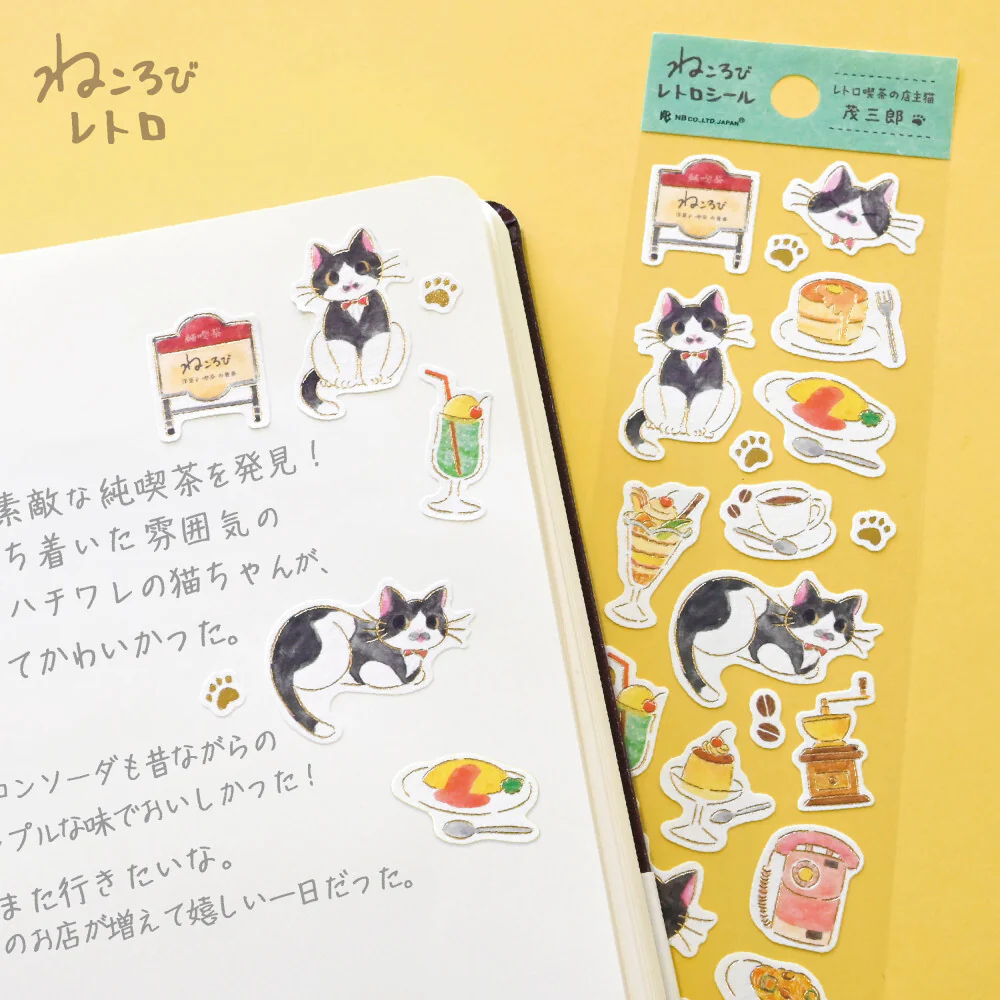 ねころび
レトロ
ねころび
レトロシール
NB CO.,LTD.JAPAN®
レトロ喫茶の店主猫
茂三郎
純喫茶
ねころび
純喫茶
ねころび
素敵な純喫茶を発見！
ち着いた雰囲気の
ハチワレの猫ちゃんが、
てかわいかった。
ロンソーダも昔ながらの
プルな味でおいしかった！
また行きたいな。
のお店が増えて嬉しい一日だった。